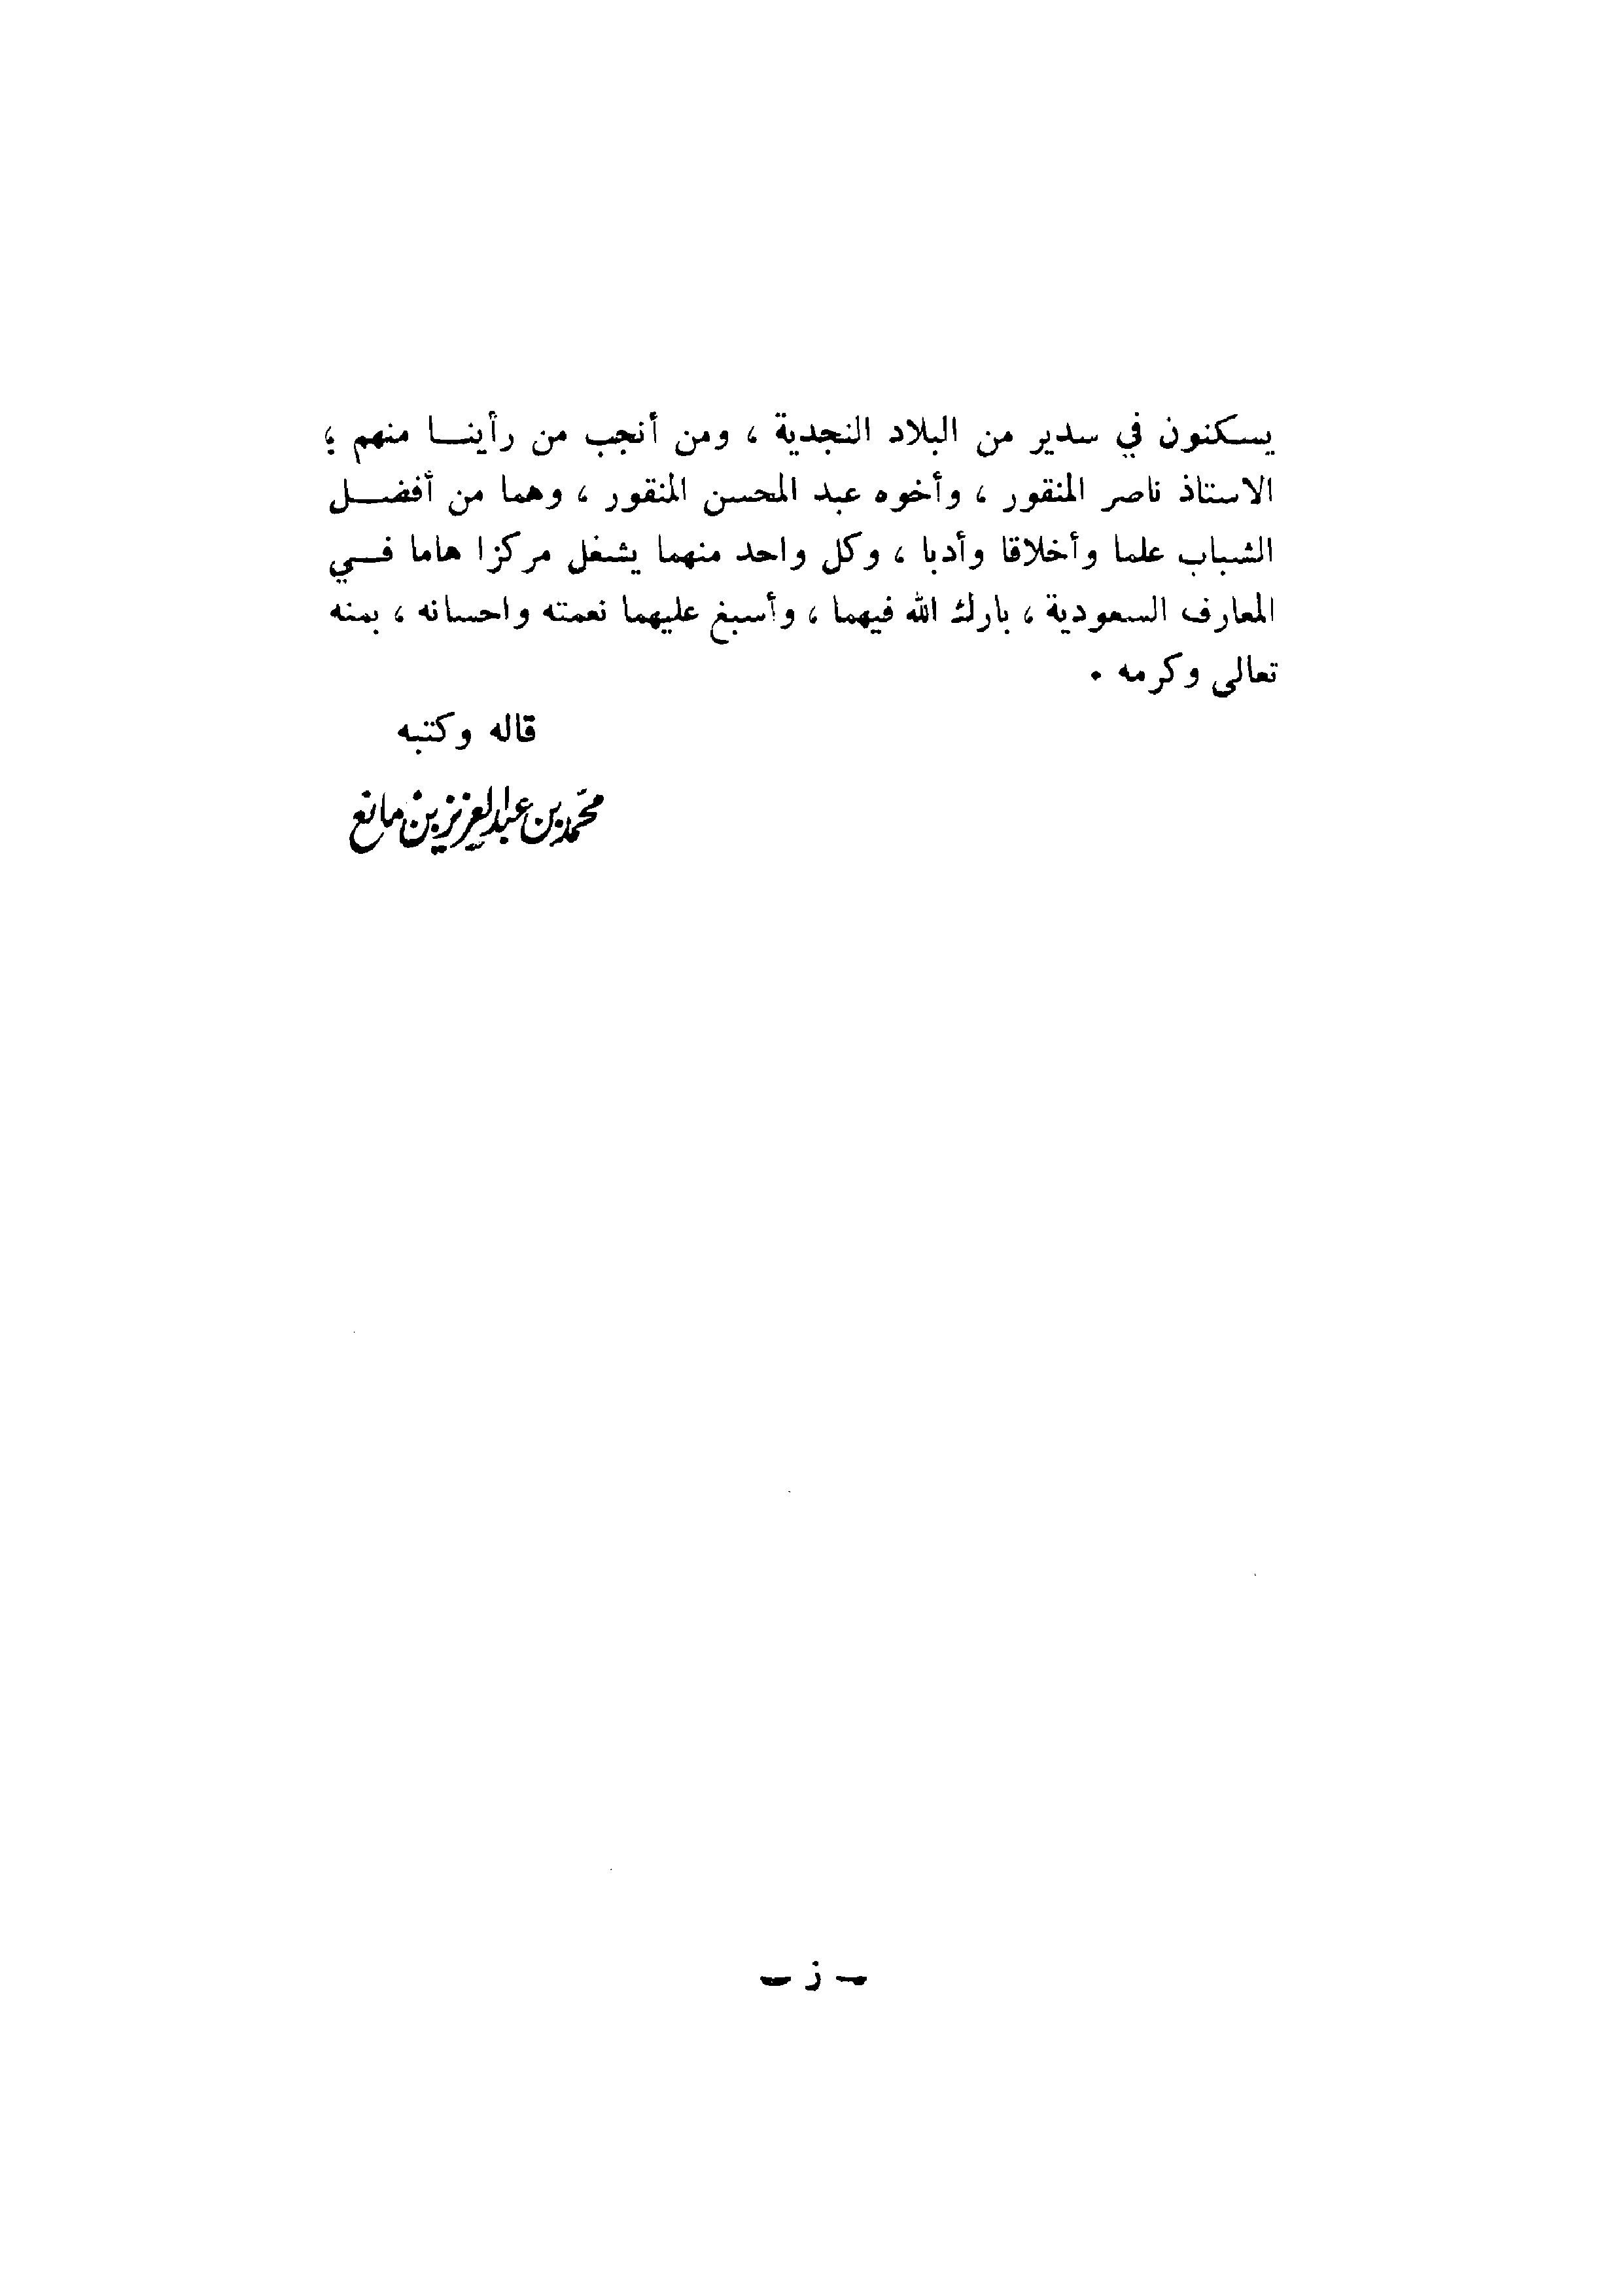 يسكنون في سدير من البلاد النجدية ، ومن أنجب من رأينا منهم ؛
الاستاذ ناصر المنقور ، وأخوه عبد المحسن المنقور ، وهما من أفضل
الشباب علما وأخلاقا وأدبا ، وكل واحد منهما يشغل مركزا هاما في
المعارف السعودية ، بارك الله فيهما ، وأسبغ عليهما نعمته واحسانه ، بمنه
تعالى وكرمه .
قاله وكتبه
محمد بن عبد العزيز بن مانع
— ز —